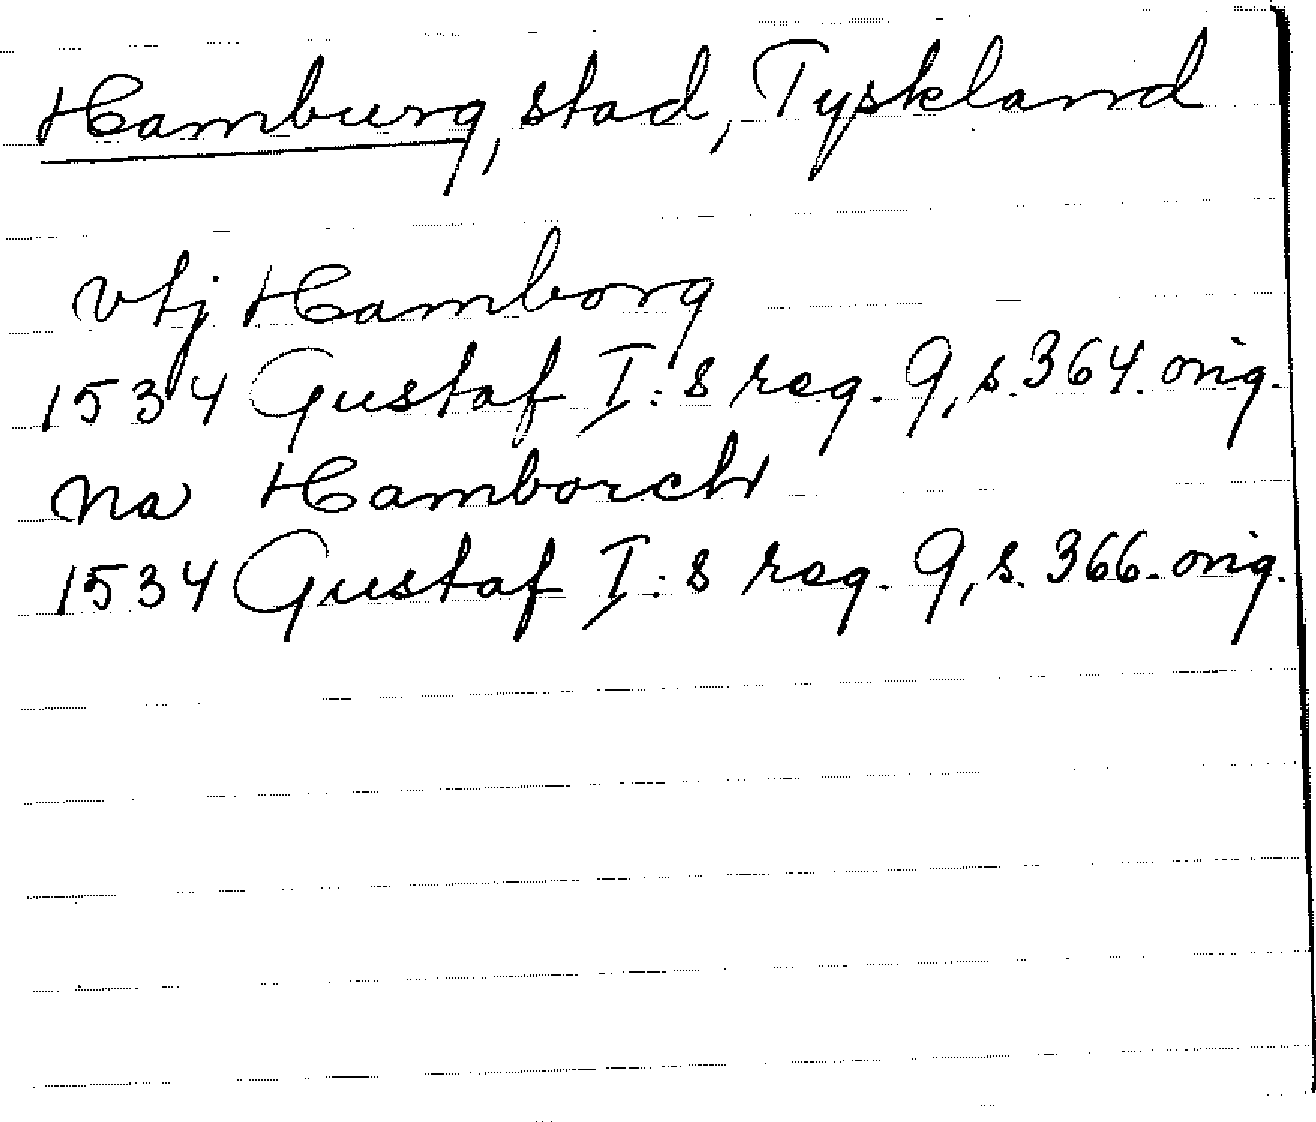 Hamburg, stad, Tyskland
vtj Hamborg
1534 Gustaf I:s reg. 9, s. 364. orig.
na Hamborch
1534 Gustaf I:s reg. 9, s. 366. orig.